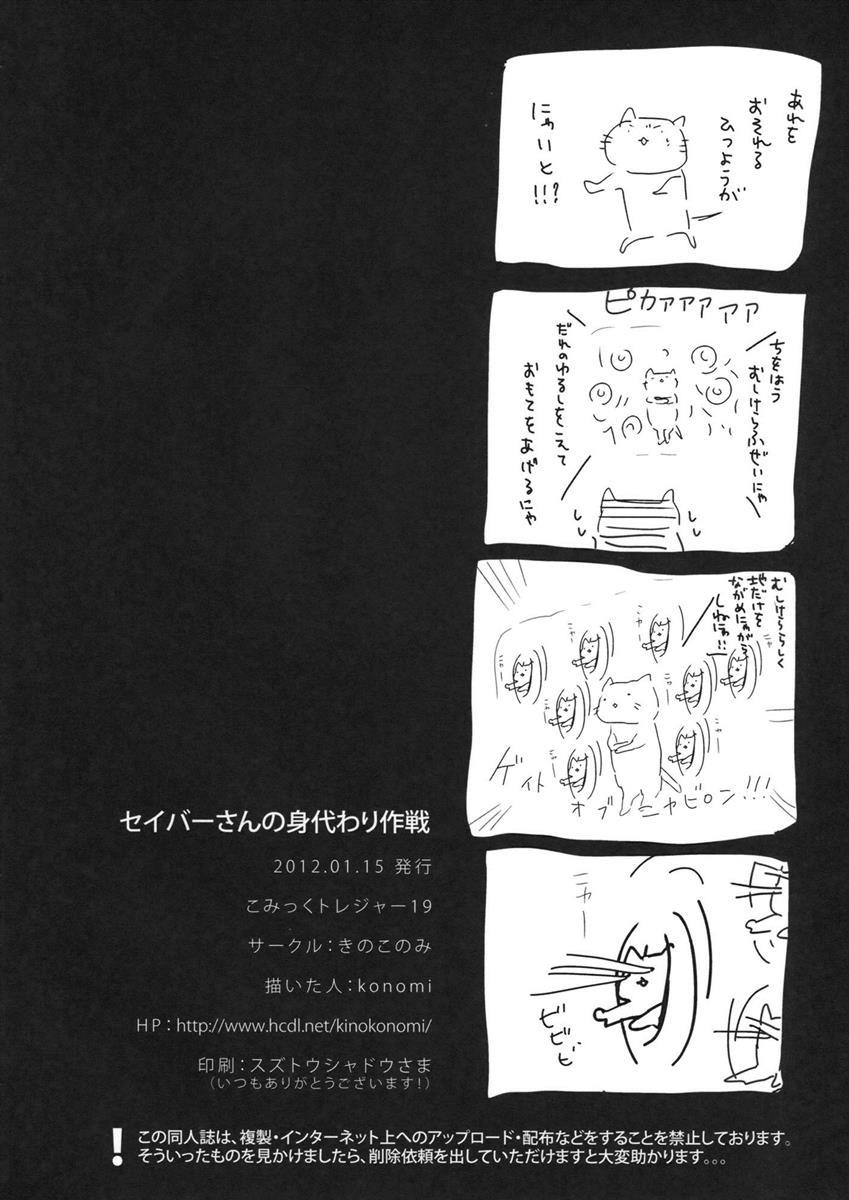 あれを
おそれる
ひつようが
にゃいと!!!?
ピカァァァァァ
ちをはう
むしけらふぜいにゃ
だれのゆるしをこえて
おもてをあげるにゃ
むしけらららしく
地だけを
ながめにゃがら
しねにゃ!!
ニャー
ニャー
ニャー
ニャー
ニャー
ニャー
ニャー
ゲイト
オブ
ニャビロン!!!
ニャー
ビビビ
セイバーさんの身代わり作戦
2012.01.15 発行
こみっくトレジャー19
サークル:きのこのみ
描いた人:konomi
HP:http://www.hcdl.net/kinokonomi/
印刷:スズトウシャドウさま
(いつもありがとうございます!)
! この同人誌は、複製・インターネット上へのアップロード・配布などをすることを禁止しております。
そういったものを見かけましたら、削除依頼を出していただけますと大変助かります。。。